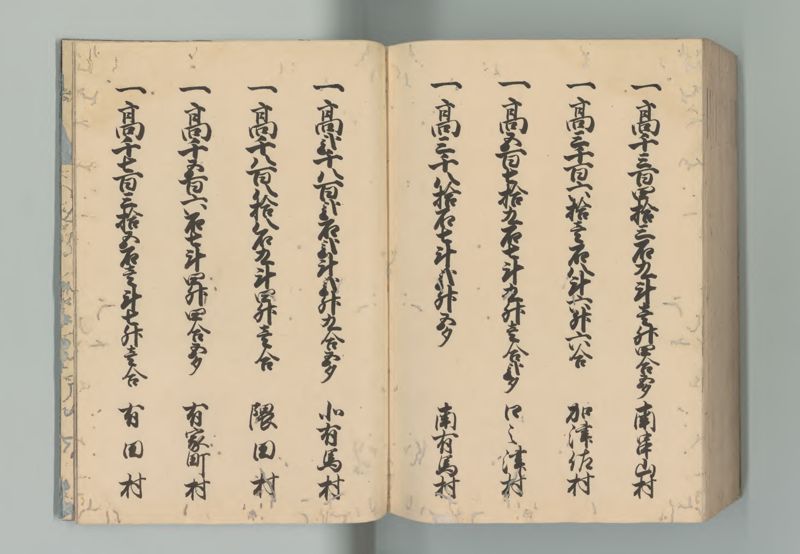 一高千三百四拾三石九斗壱升四合五夕 南串山村
一高三千百六拾壱石八斗六升六合 加津佐村
一高五百七拾九石七斗九升壱合弐夕 口之津村
一高三千八拾石七斗弐升五夕 南有馬村
一高弐千八百弐石弐斗弐升九合五夕 北有馬村
一高千八百八拾八石九斗四升壱合 隈田村
一高千五百六石七斗四升四合五夕 有家町村
一高千七百三拾五石壱斗七升壱合 有田村